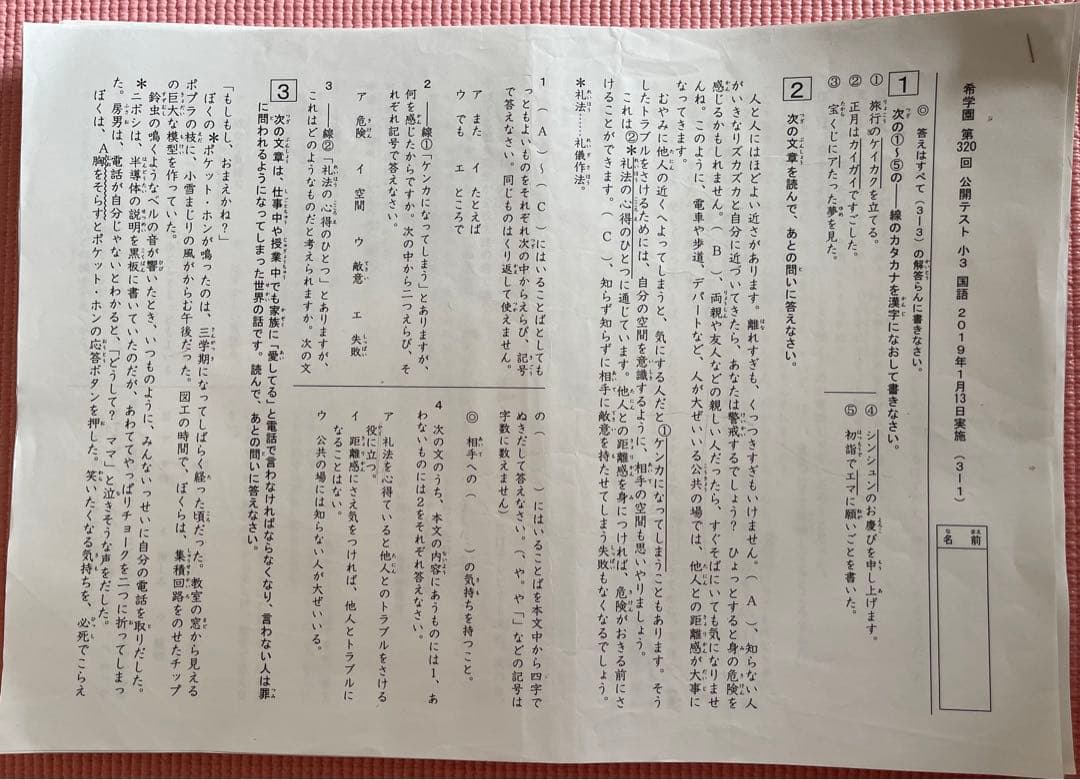 希学園 第320回 公開テスト 小3 国語 2019年1月13日実施 (3－1)
名前
◎ 答えはすべて(3－3)の解答らんに書きなさい。
1 次の①～⑤の――線のカタカナを漢字になおして書きなさい。
① 旅行のケイカクを立てる。
② 正月はカイガイですごした。
③ 宝くじにアたった夢を見た。
④ シンシュンのお慶びを申し上げます。
⑤ 初詣でエマに願いごとを書いた。
2 次の文章を読んで、あとの問いに答えなさい。
人と人にはほどよい近さがあります。離れすぎも、くっつきすぎもいけません。( A )、知らない人
がいきなりズカズカと自分に近づいてきたら、あなたは警戒するでしょう? ひょっとすると身の危険を
感じるかもしれません。( B )、両親や友人などの親しい人だったら、すぐそばにいても気になりませ
んね。このように、電車や歩道、デパートなど、人が大ぜいいる公共の場では、他人との距離感が大事に
なってきます。
むやみに他人の近くへよってしまうと、気にする人だと①ケンカになってしまうこともあります。そう
したトラブルをさけるためには、自分の空間を意識するように、相手の空間も思いやりましょう。
これは②＊礼法の心得のひとつに通じています。他人との距離感を身につければ、危険がおきる前にさ
けることができます。( C )、知らず知らずに相手に敵意を持たせてしまう失敗もなくなるでしょう。
＊礼法……礼儀作法。
1 ( A )～( C )にはいることばとしても
っともよいものをそれぞれ次の中からえらび、記号
で答えなさい。同じものはくり返して使えません。
ア また イ たとえば
ウ でも エ ところで
2 ――線①「ケンカになってしまう」とありますが、
何を感じたからですか。次の中から二つえらび、そ
れぞれ記号で答えなさい。
ア 危険 イ 空間 ウ 敵意 エ 失敗
3 ――線②「礼法の心得のひとつ」とありますが、
これはどのようなものだと考えられますか。次の文
の( )にはいることばを本文中から四字で
ぬきだして答えなさい。(、や。や「」などの記号は
字数に数えません)
◎ 相手への( )の気持ちを持つこと。
4 次の文のうち、本文の内容にあうものには1、あ
わないものには2をそれぞれ答えなさい。
ア 礼法を心得ていると他人とのトラブルをさける
役に立つ。
イ 距離感にさえ気をつければ、他人とトラブルに
なることはない。
ウ 公共の場には知らない人が大ぜいいる。
3 次の文章は、仕事中や授業中でも家族に「愛してる」と電話で言わなければならなくなり、言わない人は罪
に問われるようになってしまった世界の話です。読んで、あとの問いに答えなさい。
「もしもし、おまえかね?」
ぼくの＊ポケット・ホンが鳴ったのは、三学期になってしばらく経った頃だった。教室の窓から見える
ポプラの枝に、小雪まじりの風がからむ午後だった。図工の時間で、ぼくらは、集積回路をのせたチップ
の巨大な模型を作っていた。
鈴虫の鳴くようなベルの音が響いたとき、いつものように、みんないっせいに自分の電話を取りだした。
＊ニボシは、半導体の説明を黒板に書いていたのだが、あわててやっぱりチョークを二つに折ってしまっ
た。房男は、電話が自分じゃないとわかると、「どうして? ママ」と泣きそうな声をだした。
ぼくは、A胸をそらすとポケット・ホンの応答ボタンを押した。笑いたくなる気持ちを、必死でこらえ